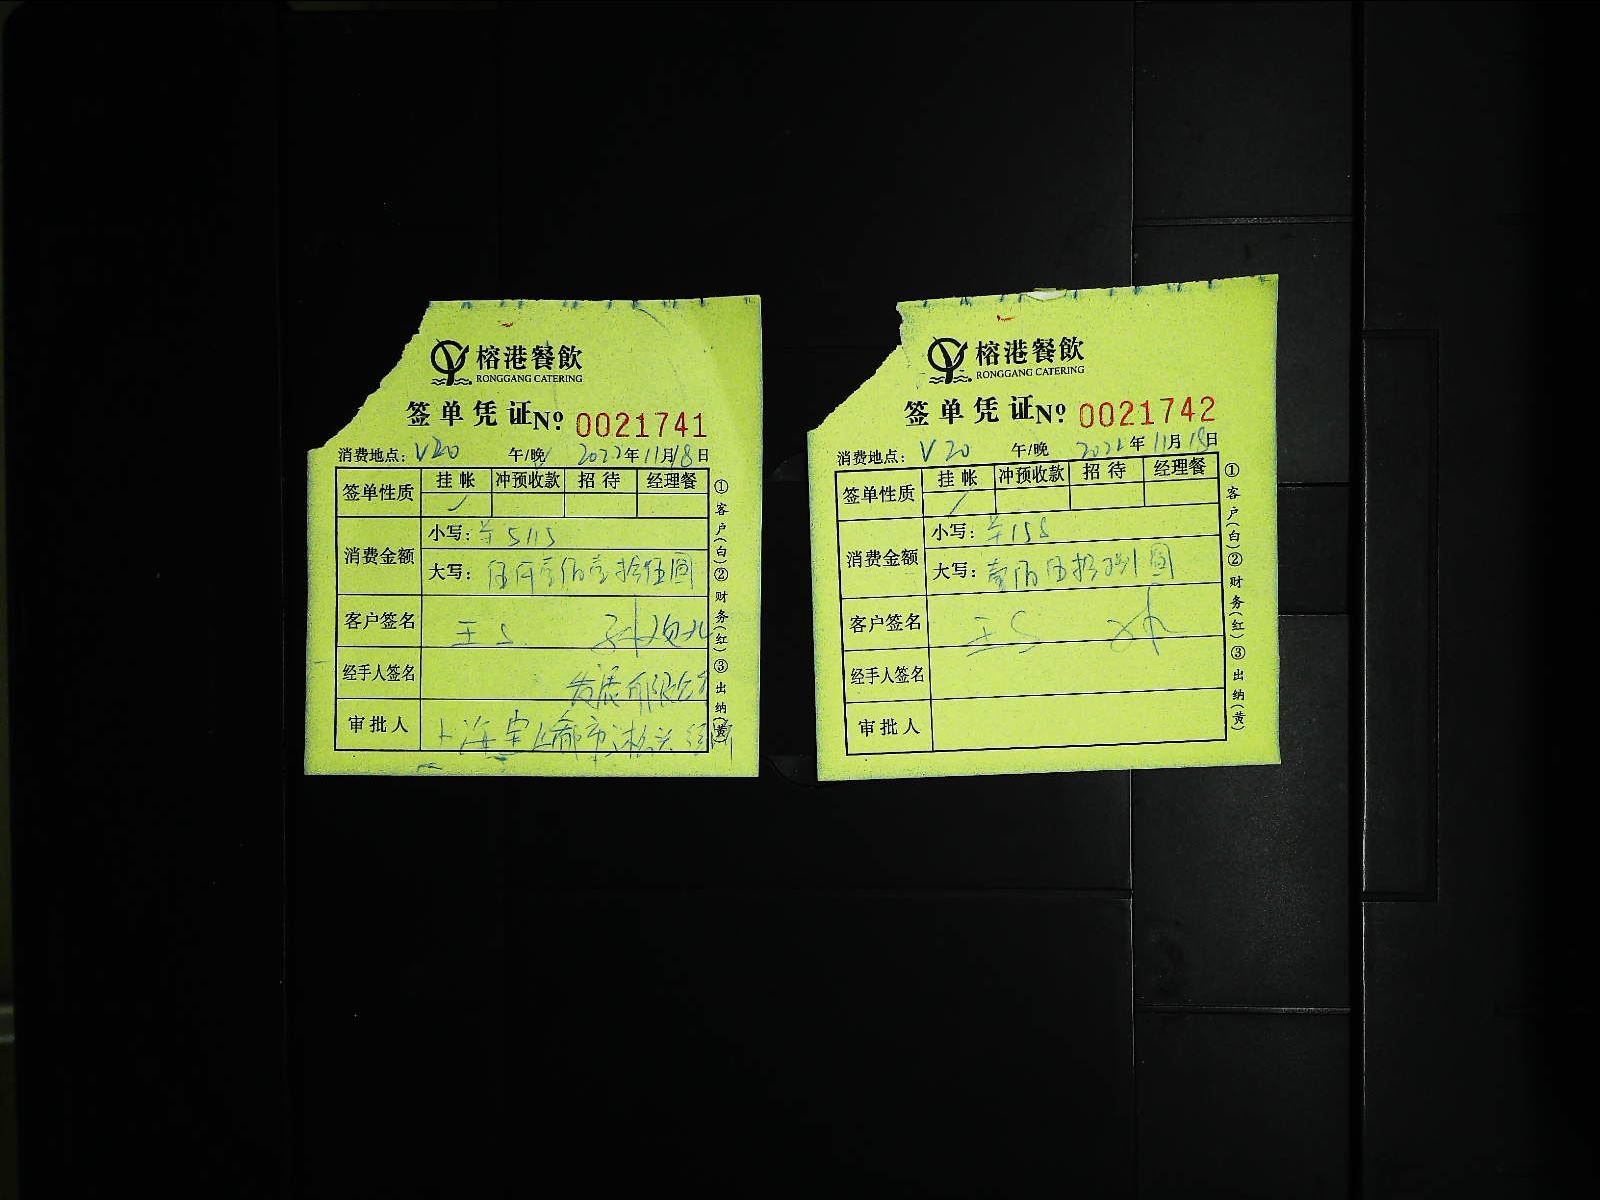 榕港餐飲
RONGGANG CATERING
签单凭证 Nº 0021741
消费地点: V20 午/晚 2022年11月18日
签单性质 挂帐 冲预收款 招待 经理餐
消费金额
小写: ¥5115
大写: 伍仟壹佰壹拾伍圆
客户签名 王S
经手人签名 发展有限公
审批人 上海
①客户(白)②财务(红)③出纳(黄)
榕港餐飲
RONGGANG CATERING
签单凭证 Nº 0021742
消费地点: V20 午/晚 2022年11月18日
签单性质 挂帐 冲预收款 招待 经理餐
消费金额
小写: ¥158
大写: 壹佰伍拾捌圆
客户签名 王S
经手人签名
审批人
①客户(白)②财务(红)③出纳(黄)